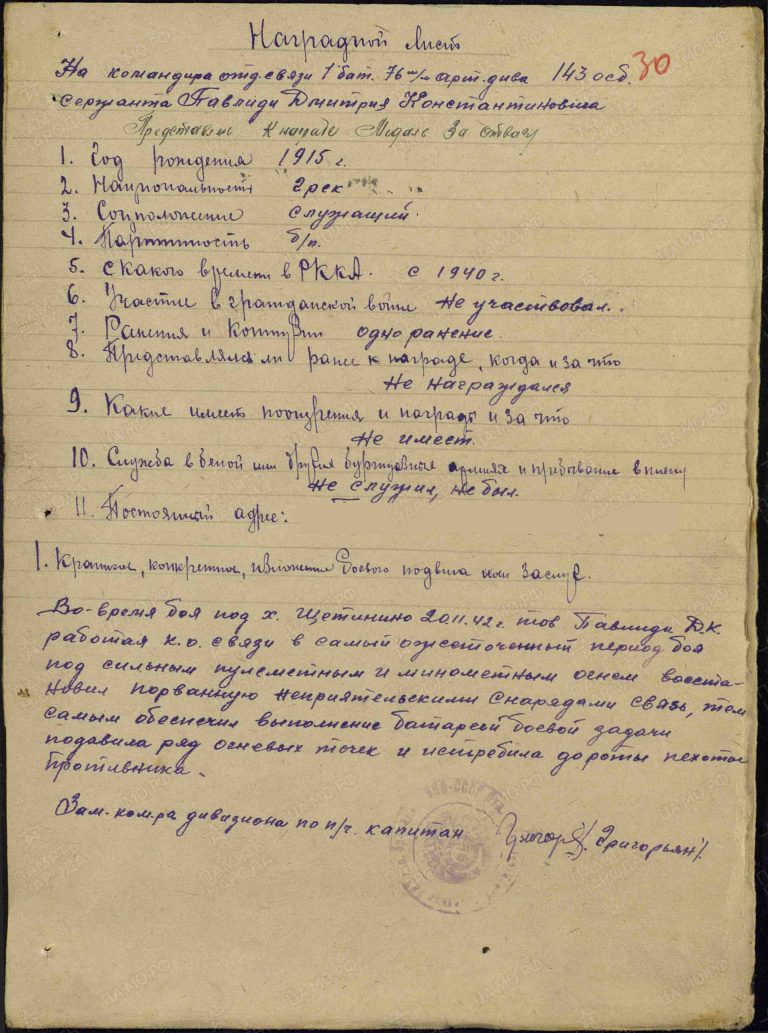 Наградной Лист
На командира отд. связи 1 бат. 76 м/м арт. дива 143 осб. 30
сержанта Павлиди Дмитрия Константиновича
Представлен к награде Медаль За отвагу
1. Год рождения 1915 г.
2. Национальность грек
3. Соцположение служащий.
4. Партийность б/п.
5. с какого времени в РККА. с 1940 г.
6. Участие в гражданской войне не участвовал.
7. Ранения и контузии одно ранение.
8. Представлялся ли ранее к награде, когда и за что
не награждался
9. Какие имеет поощрения и награды и за что
не имеет.
10. Служба в белой или других буржуазных армиях и пребывание в плену
не служил, не был.
11. Постоянный адрес:
1. Краткое, конкретное, изложение боевого подвига или заслуг.
Во-время боя под х. Щетинино 20.11.42 г. тов Павлиди Д.К.
работая к.о. связи в самый ожесточенный период боя
под сильным пулеметным и минометным огнем восста-
новил порванную неприятельскими снарядами связь, тем
самым обеспечил выполнение батареей боевой задачи
подавила ряд огневых точек и истребила до роты пехоты
противника.
Зам. ком-ра дивизиона по п/ч. капитан /Григорьян/.